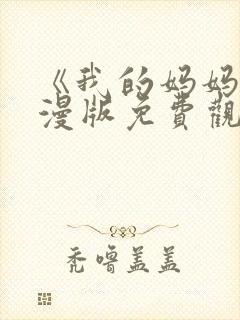 《我的妈妈
漫版免費觀
秃噜盖盖